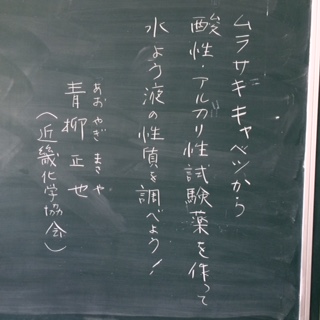 ムラサキキャベツから
酸性・アルカリ性試験薬を作って
水よう液の性質を調べよう!
あお やぎ まさ や
青柳正也
(近畿化学協会)